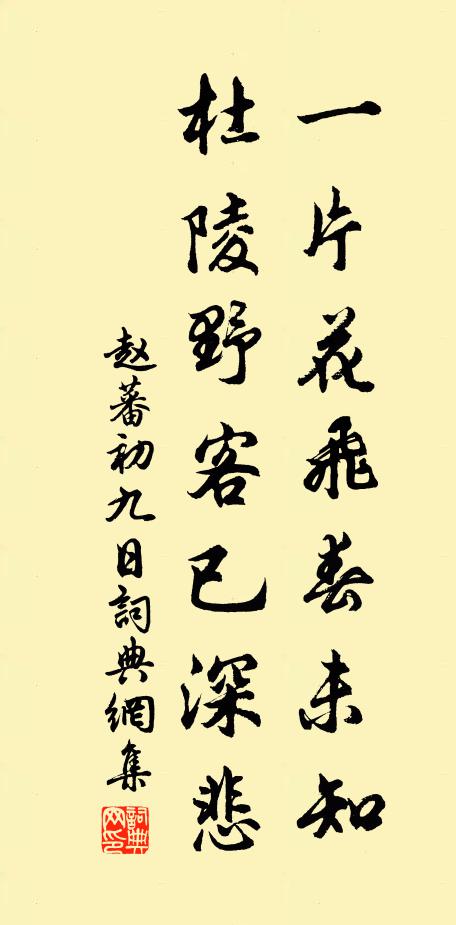 一片花飛春未知
杜陵野客已深悲
赵蕃初九日詞典網集
詞典网印